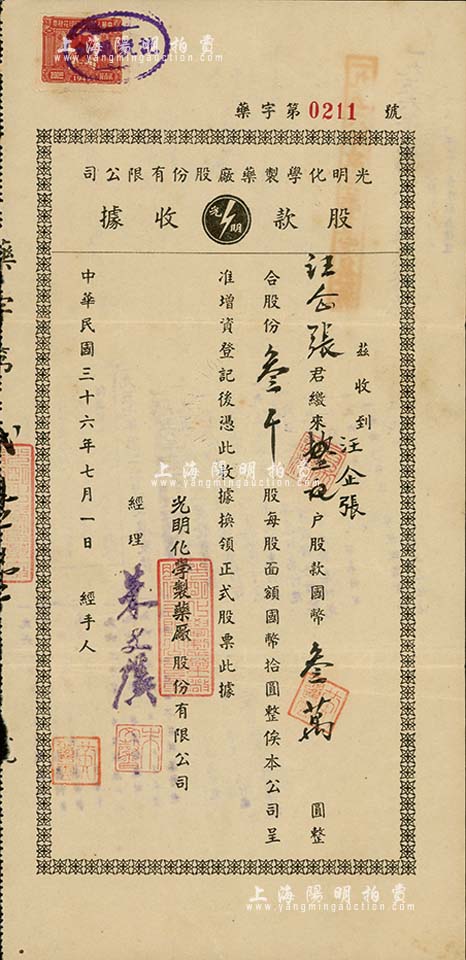 上海陽明拍賣
www.yangmingauction.com
藥字第0211號
光明化學製藥廠股份有限公司
股款收據
光明
茲收到汪企張
汪企張君繳來 戶股款國幣叁萬圓整
合股份叁千股每股面額國幣拾圓整俟本公司呈
准增資登記後憑此收據換領正式股票此據
光明化學製藥廠股份有限公司
經理
中華民國三十六年七月一日 經手人
藥字第
上海陽明拍賣
www.yangmingauction.com
上海陽明拍賣
www.yangmingauction.com